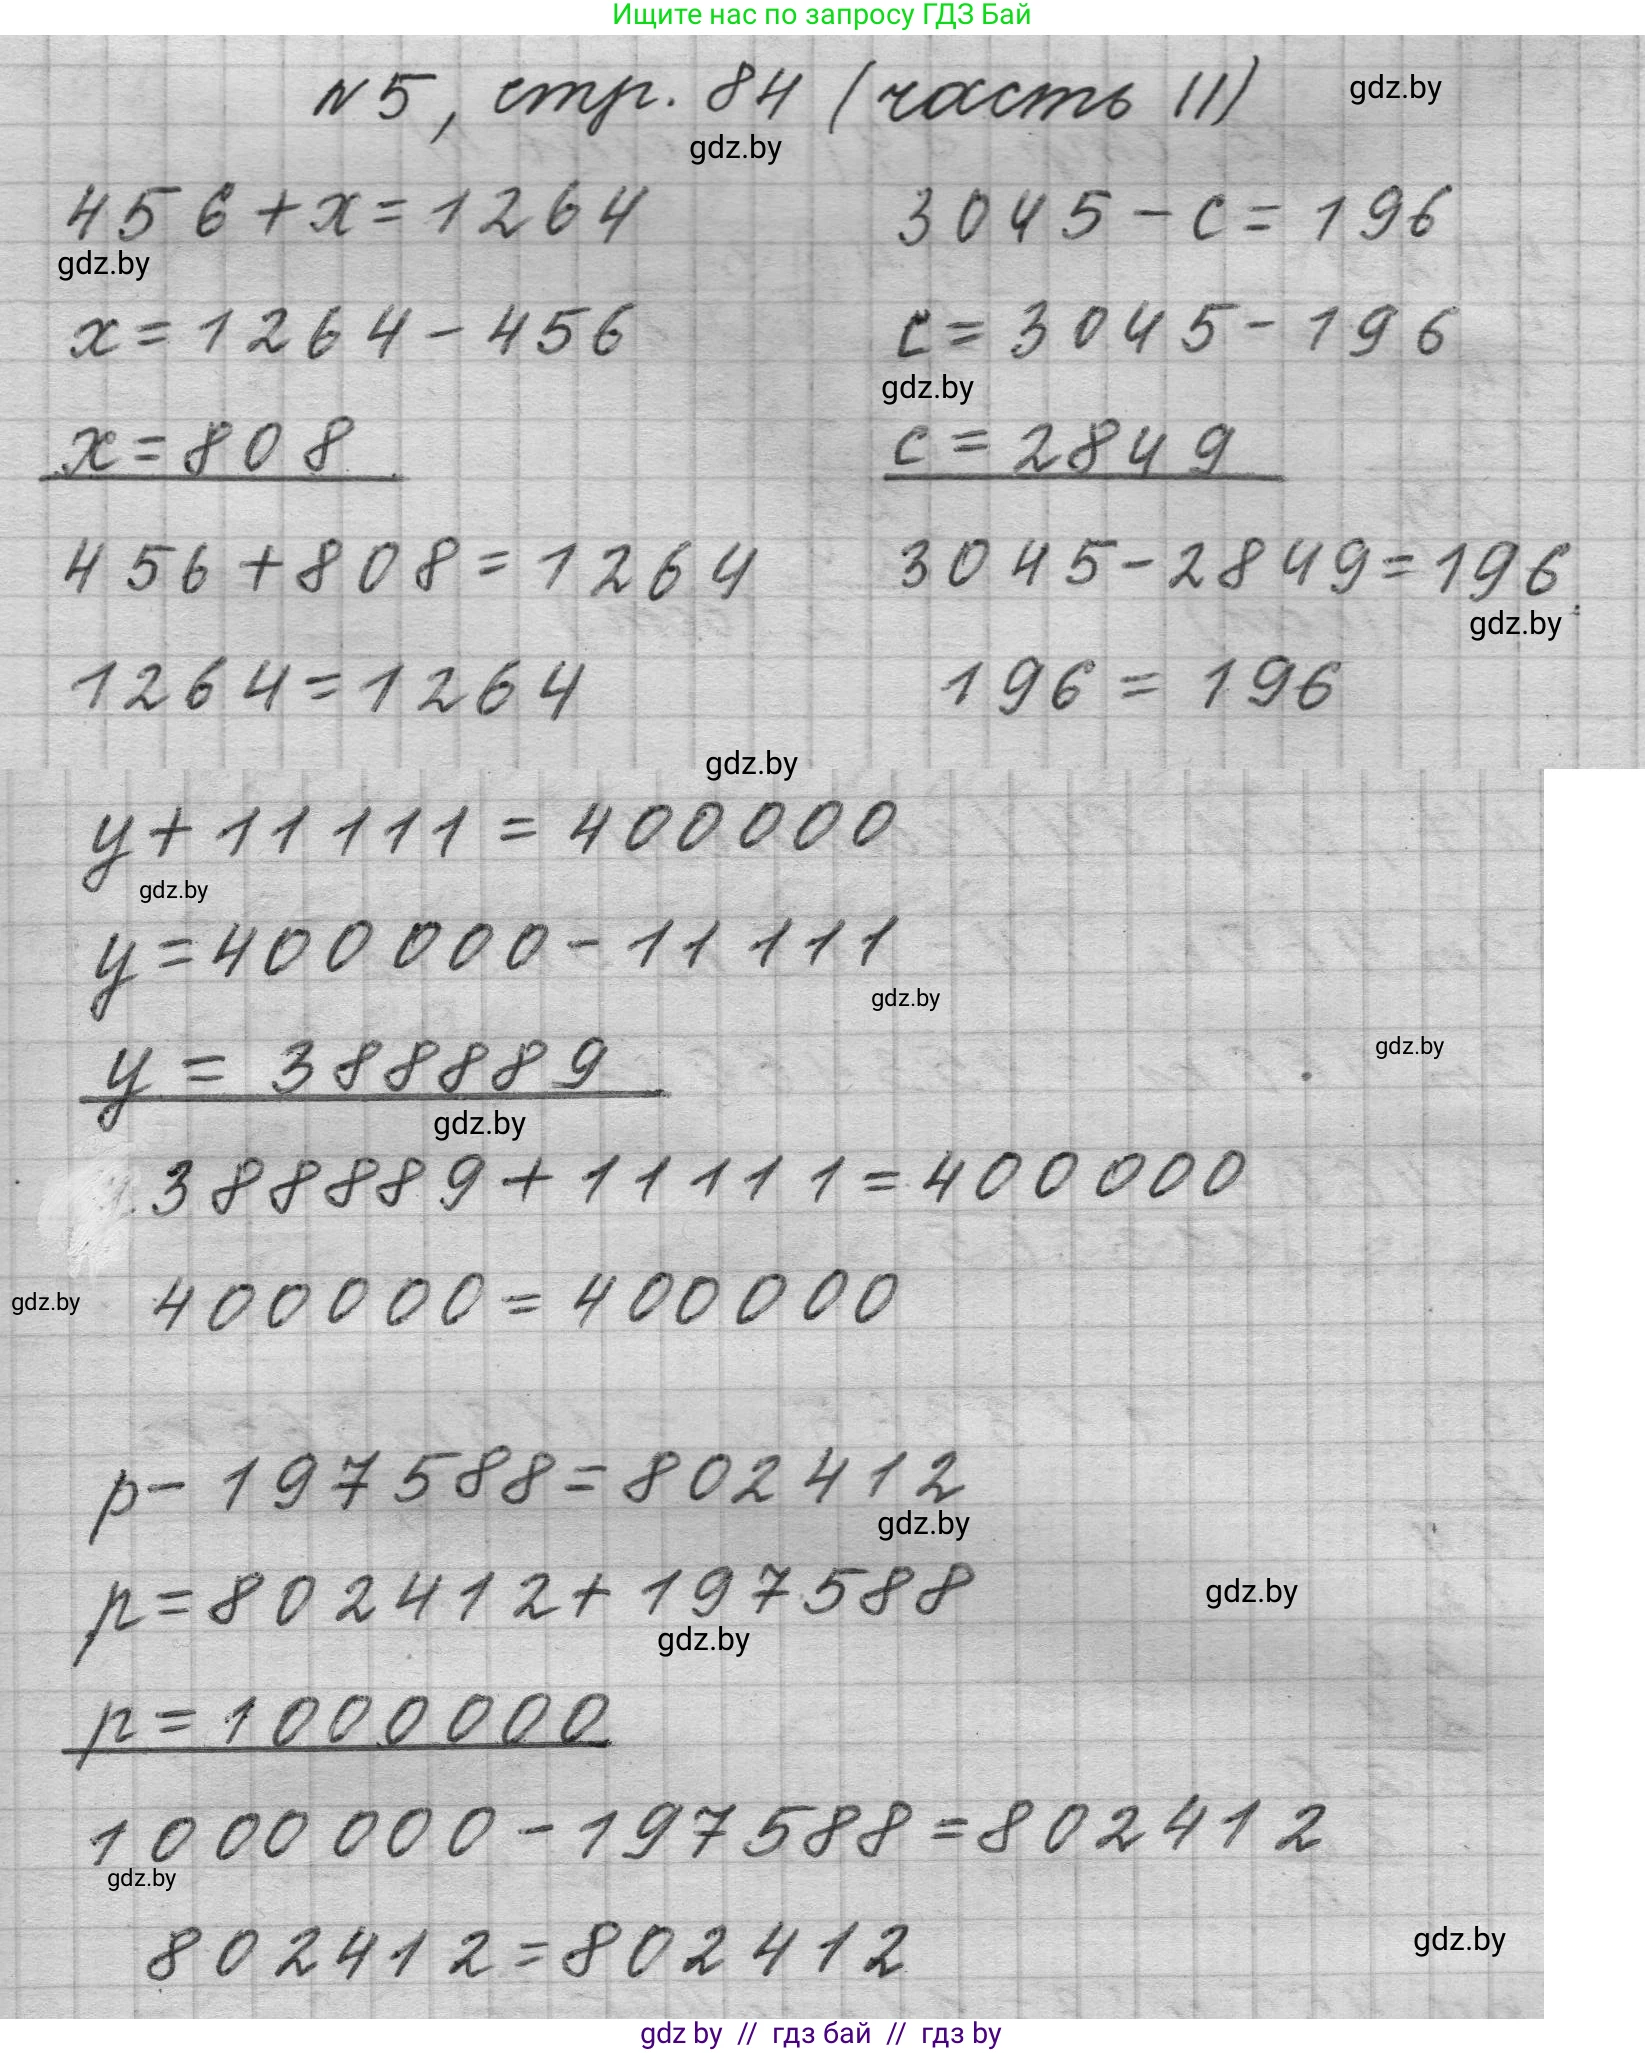 Ищите нас по запросу ГДЗ Бай
№5, стр. 84 (часть II)
gdz.by
gdz.by
456+x=1264
gdz.by
x=1264-456
x=808
456+808=1264
1264=1264
3045-c=196
c=3045-196
gdz.by
c=2849
3045-2849=196
gdz.by
196=196
gdz.by
y+11111=400000
gdz.by
y=400000-11111
gdz.by
gdz.by
y=388889
gdz.by
388889+11111=400000
gdz.by
400000=400000
p-197588=802412
gdz.by
p=802412+197588
gdz.by
gdz.by
p=1000000
1000000-197588=802412
gdz.by
802412=802412
gdz.by
gdz by // гдз бай // гдз by